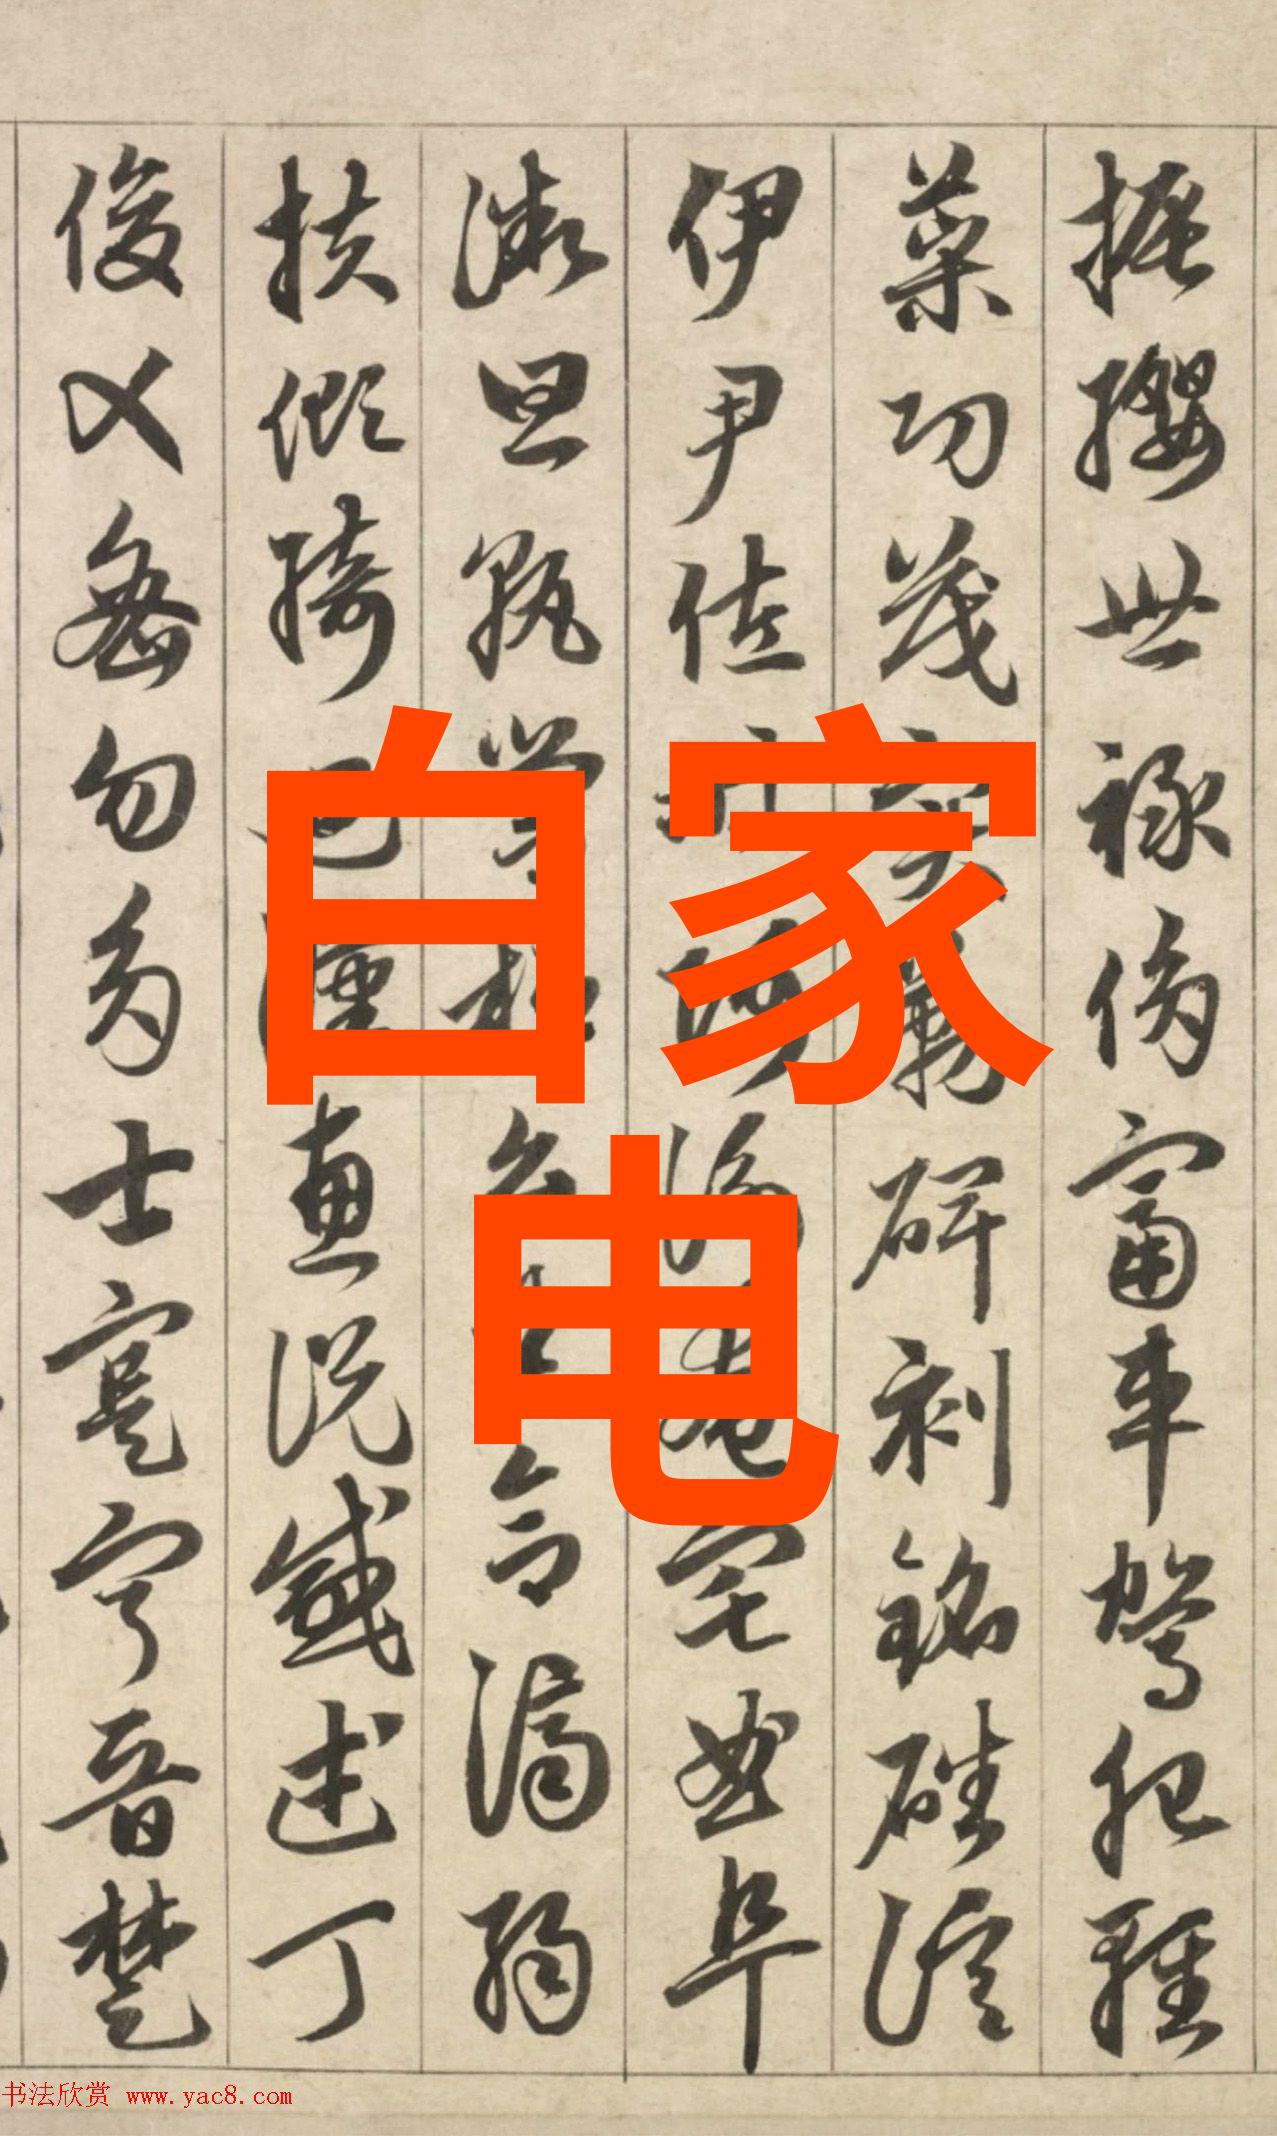 白家
电
振纓世祿侈富車駕肥輕
策功茂實勒碑刻銘磻溪
伊尹佐時阿衡奄宅曲阜
微旦孰營桓公匡合濟弱
扶傾綺迴漢惠說感武丁
俊乂密勿多士寔寧晉楚
书法欣赏 www.yac8.com